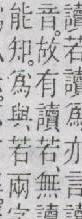 讀若讀爲亦言
音。故有讀若無讀
能知。爲與若兩字